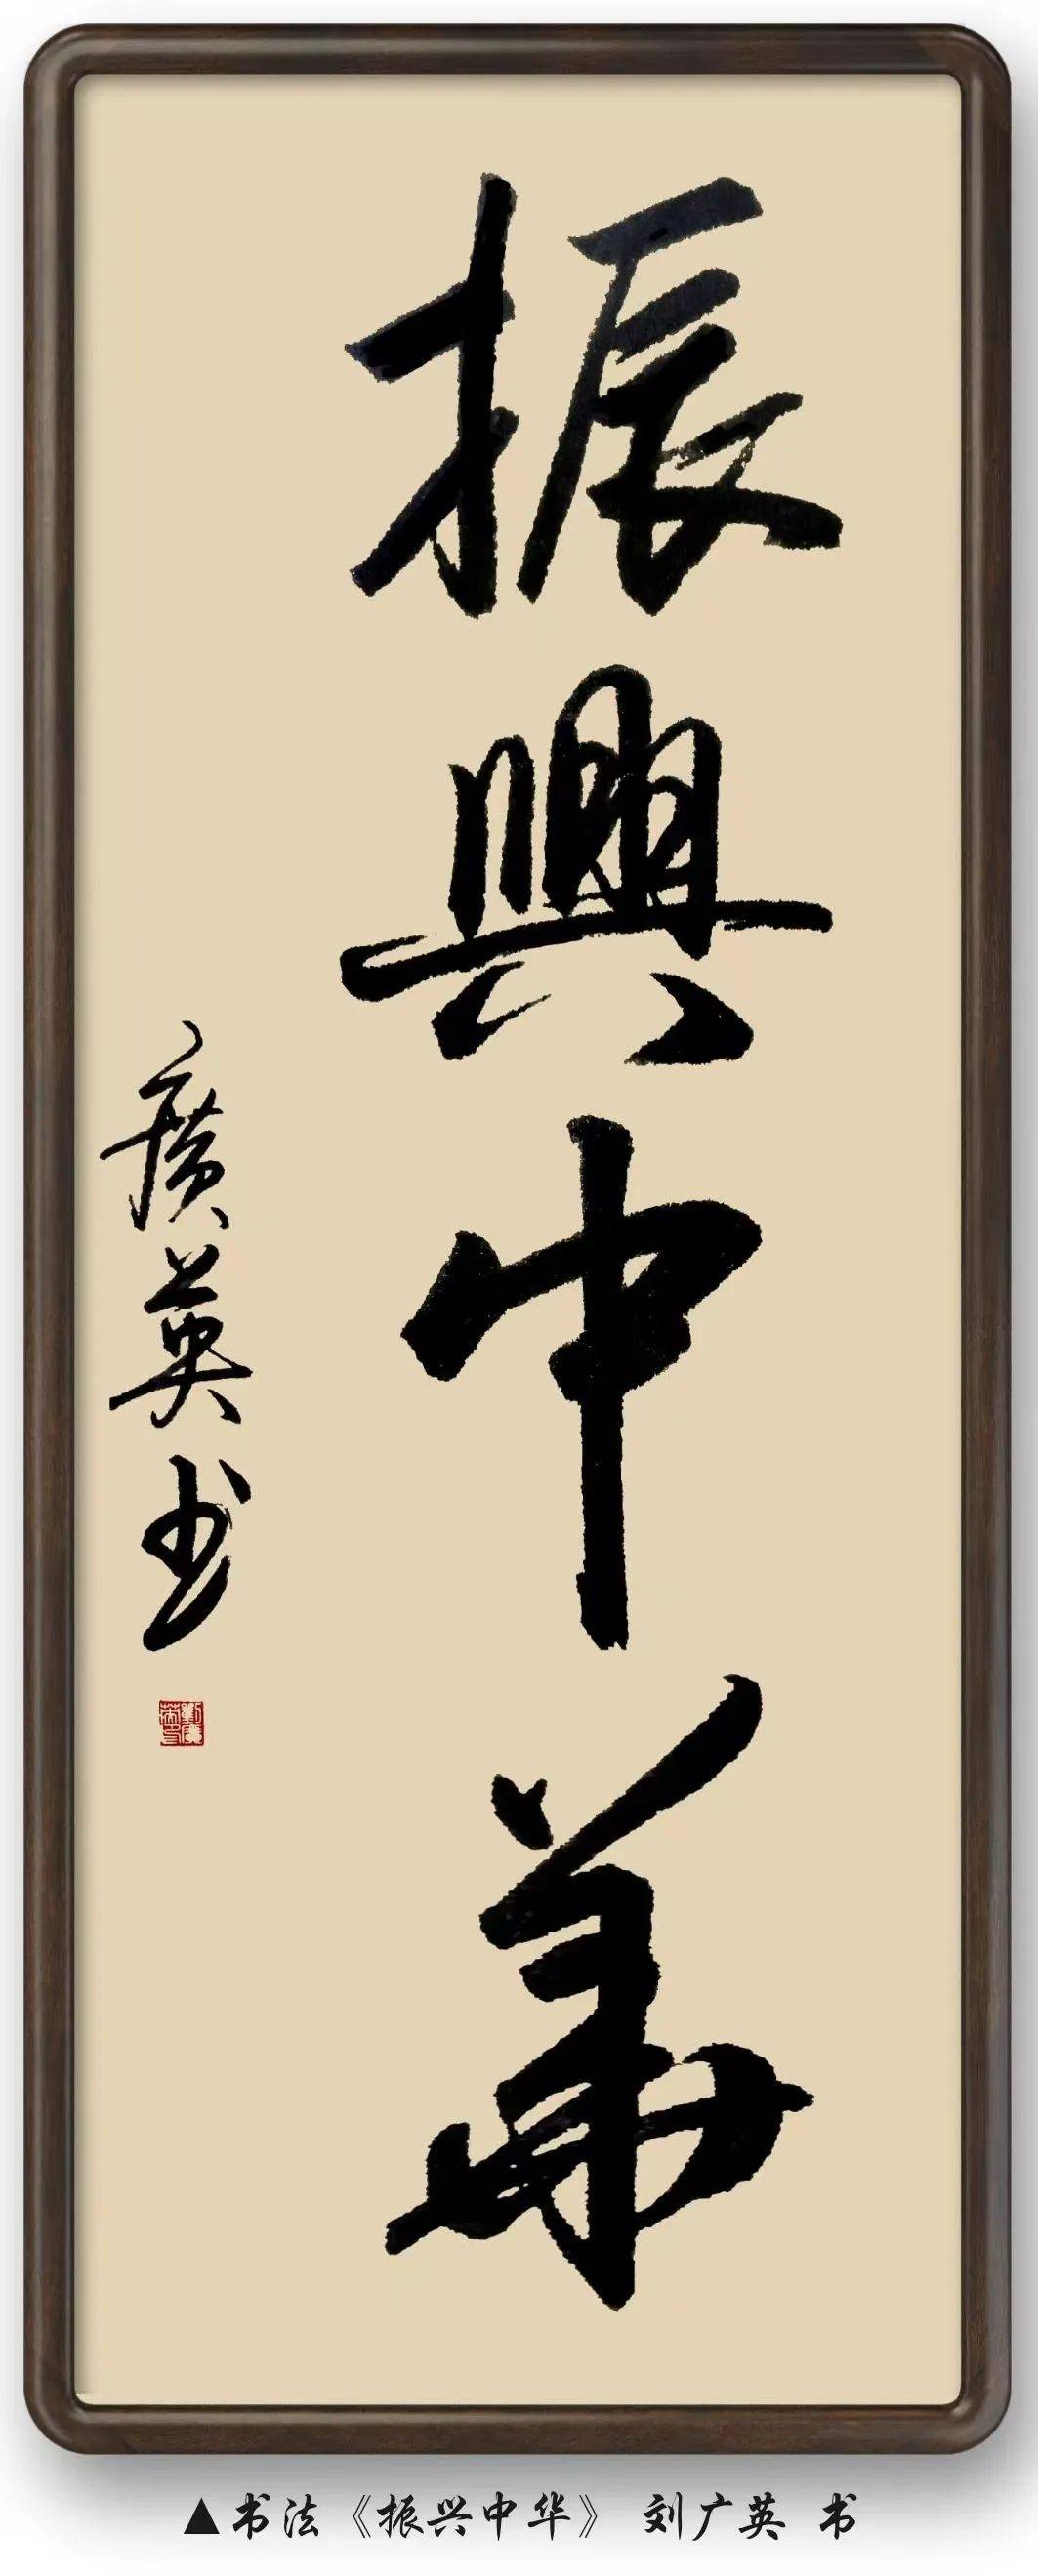 振興中華
廣英书
▲书法《振兴中华》 刘广英 书